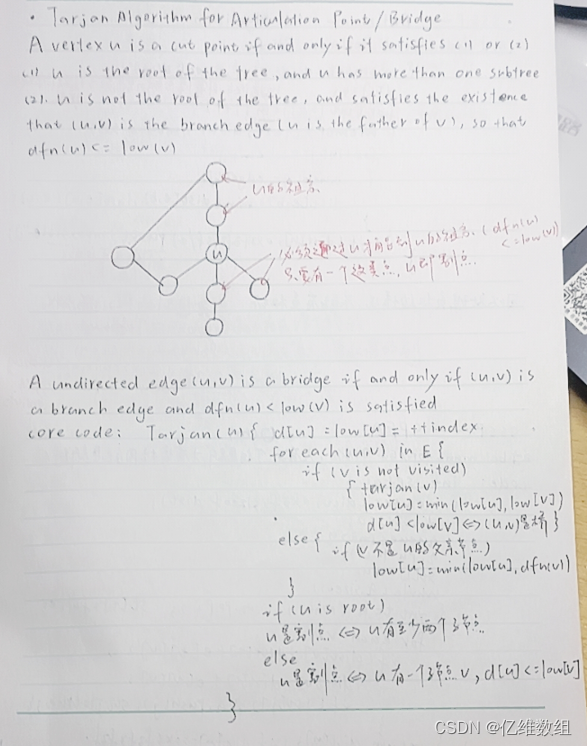 • Tarjan Algorithm for Articulation Point / Bridge
A vertex u is a cut point if and only if it satisfies (1) or (2)
(1) u is the root of the tree, and u has more than one subtree
(2). u is not the root of the tree, and satisfies the existence
that (u,v) is the branch edge (u is the father of v), so that
dfn(u) <= low(v)
u的祖先
u
必须通过u才能到u的祖先 (dfn(u)
<=low(v))
只要有一个这类点,u即割点
A undirected edge (u,v) is a bridge if and only if (u,v) is
a branch edge and dfn(u) < low(v) is satisfied
core code: Tarjan(u) { d[u] = low[u] = ++index
for each (u,v) in E {
if (v is not visited)
{ tarjan(v)
low[u] = min(low[u], low[v])
d[u] < low[v] <=> (u,v)是桥 }
else { if (v不是u的父亲节点)
low[u] = min(low[u], dfn(v))
}
if (u is root)
u是割点 <=> u有至少两个子节点
else
u是割点 <=> u有一个子节点v, d[u] <= low[v]
}
CSDN @亿维数组